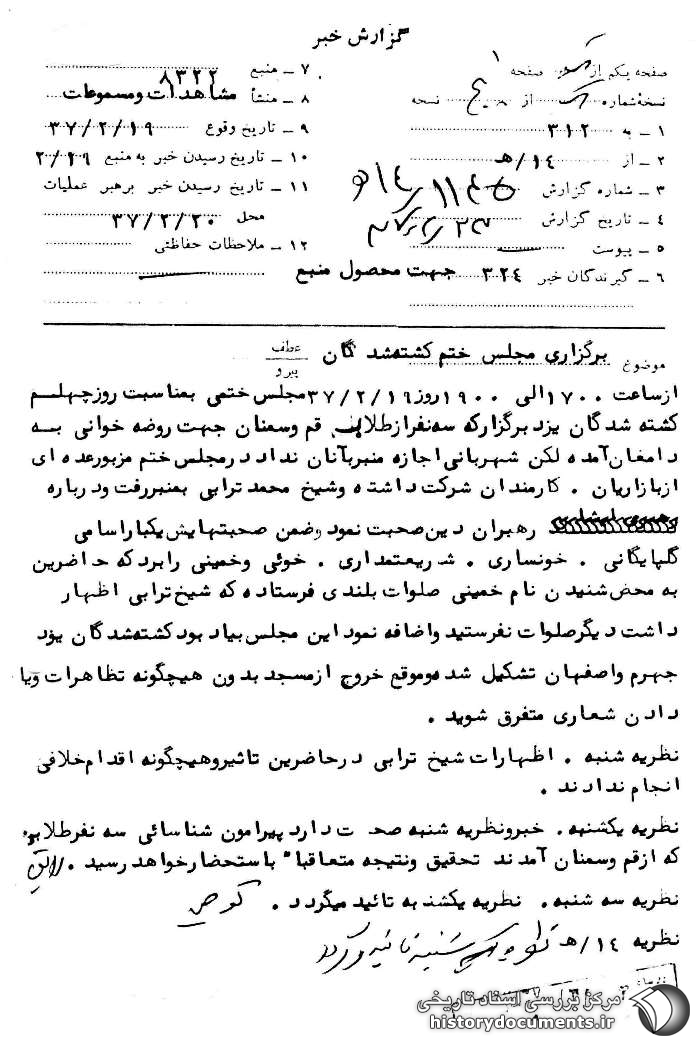 گزارش خبر
صفحه یکم از صفحه ۱
نسخه شماره از نسخه
۱ ـ به ۳۱۲
۲ ـ از ۱۴/هـ
۳ ـ شماره گزارش
۴ ـ تاریخ گزارش
۵ ـ پیوست
۶ ـ گیرندگان خبر ۳۲۴ جهت محصول منبع
۷ ـ منبع ۸۳۲۲
۸ ـ منشأ مشاهدات و مسموعات
۹ ـ تاریخ وقوع ۳۷/۲/۱۹
۱۰ ـ تاریخ رسیدن خبر به منبع ۲/۱۹
۱۱ ـ تاریخ رسیدن خبر برهبر عملیات
محل ۳۷/۲/۲۰
۱۲ ـ ملاحظات حفاظتی
موضوع برگزاری مجلس ختم کشته‌شدگان عطف پیرو
ازساعت ۱۷۰۰ الی ۱۹۰۰ روز ۳۷/۲/۱۹ مجلس ختمی بمناسبت روزچهلم
کشته شدگان یزد برگزارکه سه‌نفرازطلاب قم وسمنان جهت روضه خوانی به
دامغان‌آمده لکن شهربانی‌اجازه منبربآنان نداد درمجلس ختم مزبورعده ای
ازبازاریان . کارمندان شرکت داشته وشیخ محمد ترابی بمنبررفت ودرباره
رهبران دین‌صحبت نمود وضمن صحبتهایش یکبار اسامی
گلپایگانی . خونساری . شریعتمداری . خوئی وخمینی رابرد که حاضرین
به محض‌شنیدن نام خمینی صلوات بلندی فرستاده که شیخ‌ترابی اظهار
داشت دیگرصلوات نفرستید واضافه نمود این مجلس‌بیاد بود کشته‌شدگان یزد
جهرم واصفهان تشکیل شده وموقع خروج ازمسجد بدون هیچگونه تظاهرات ویا
دادن شعاری متفرق شوید .
نظریه شنبه . اظهارات شیخ ترابی درحاضرین تاثیروهیچگونه اقدام‌خلافی
انجام ندادند .
نظریه یکشنبه . خبرونظریه شنبه صحت دارد پیرامون شناسائی سه نفرطلابی
که ازقم وسمنان آمدند تحقیق ونتیجه متعاقبا" باستحضارخواهد رسید .
نظریه سه شنبه . نظریه یکشنبه تائید میگردد .
نظریه ۱۴/هـ
مرکز بررسی اسناد تاریخی
historydocuments.ir